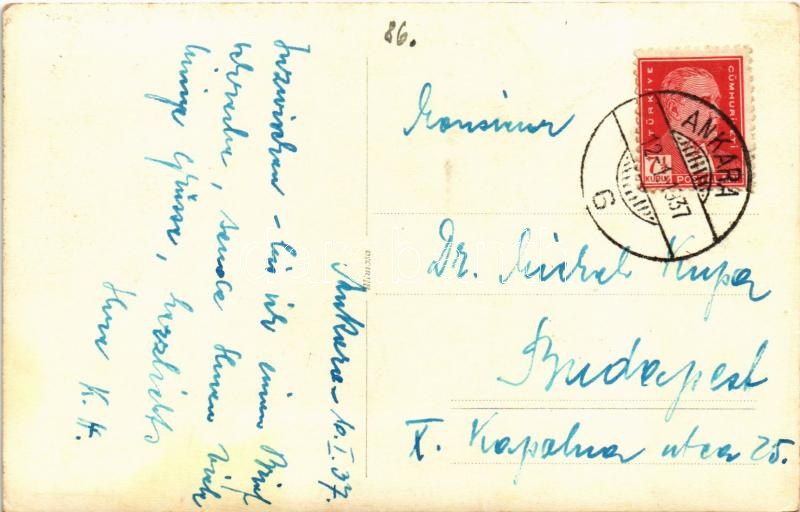 86.
Ankara 10.I.37.
Inzwischen - bis ich einen Brief
schreibe, sende Ihnen viele
innige Grüsse, herzlichst
Ihre K. H.
Monsieur
Dr. Michel Kupa
Budapest
X. Kapolna utca 25.
TÜRKİYE CÜMHURİYETİ
7½
KURUŞ POSTA
ANKARA
12.1.1937
6